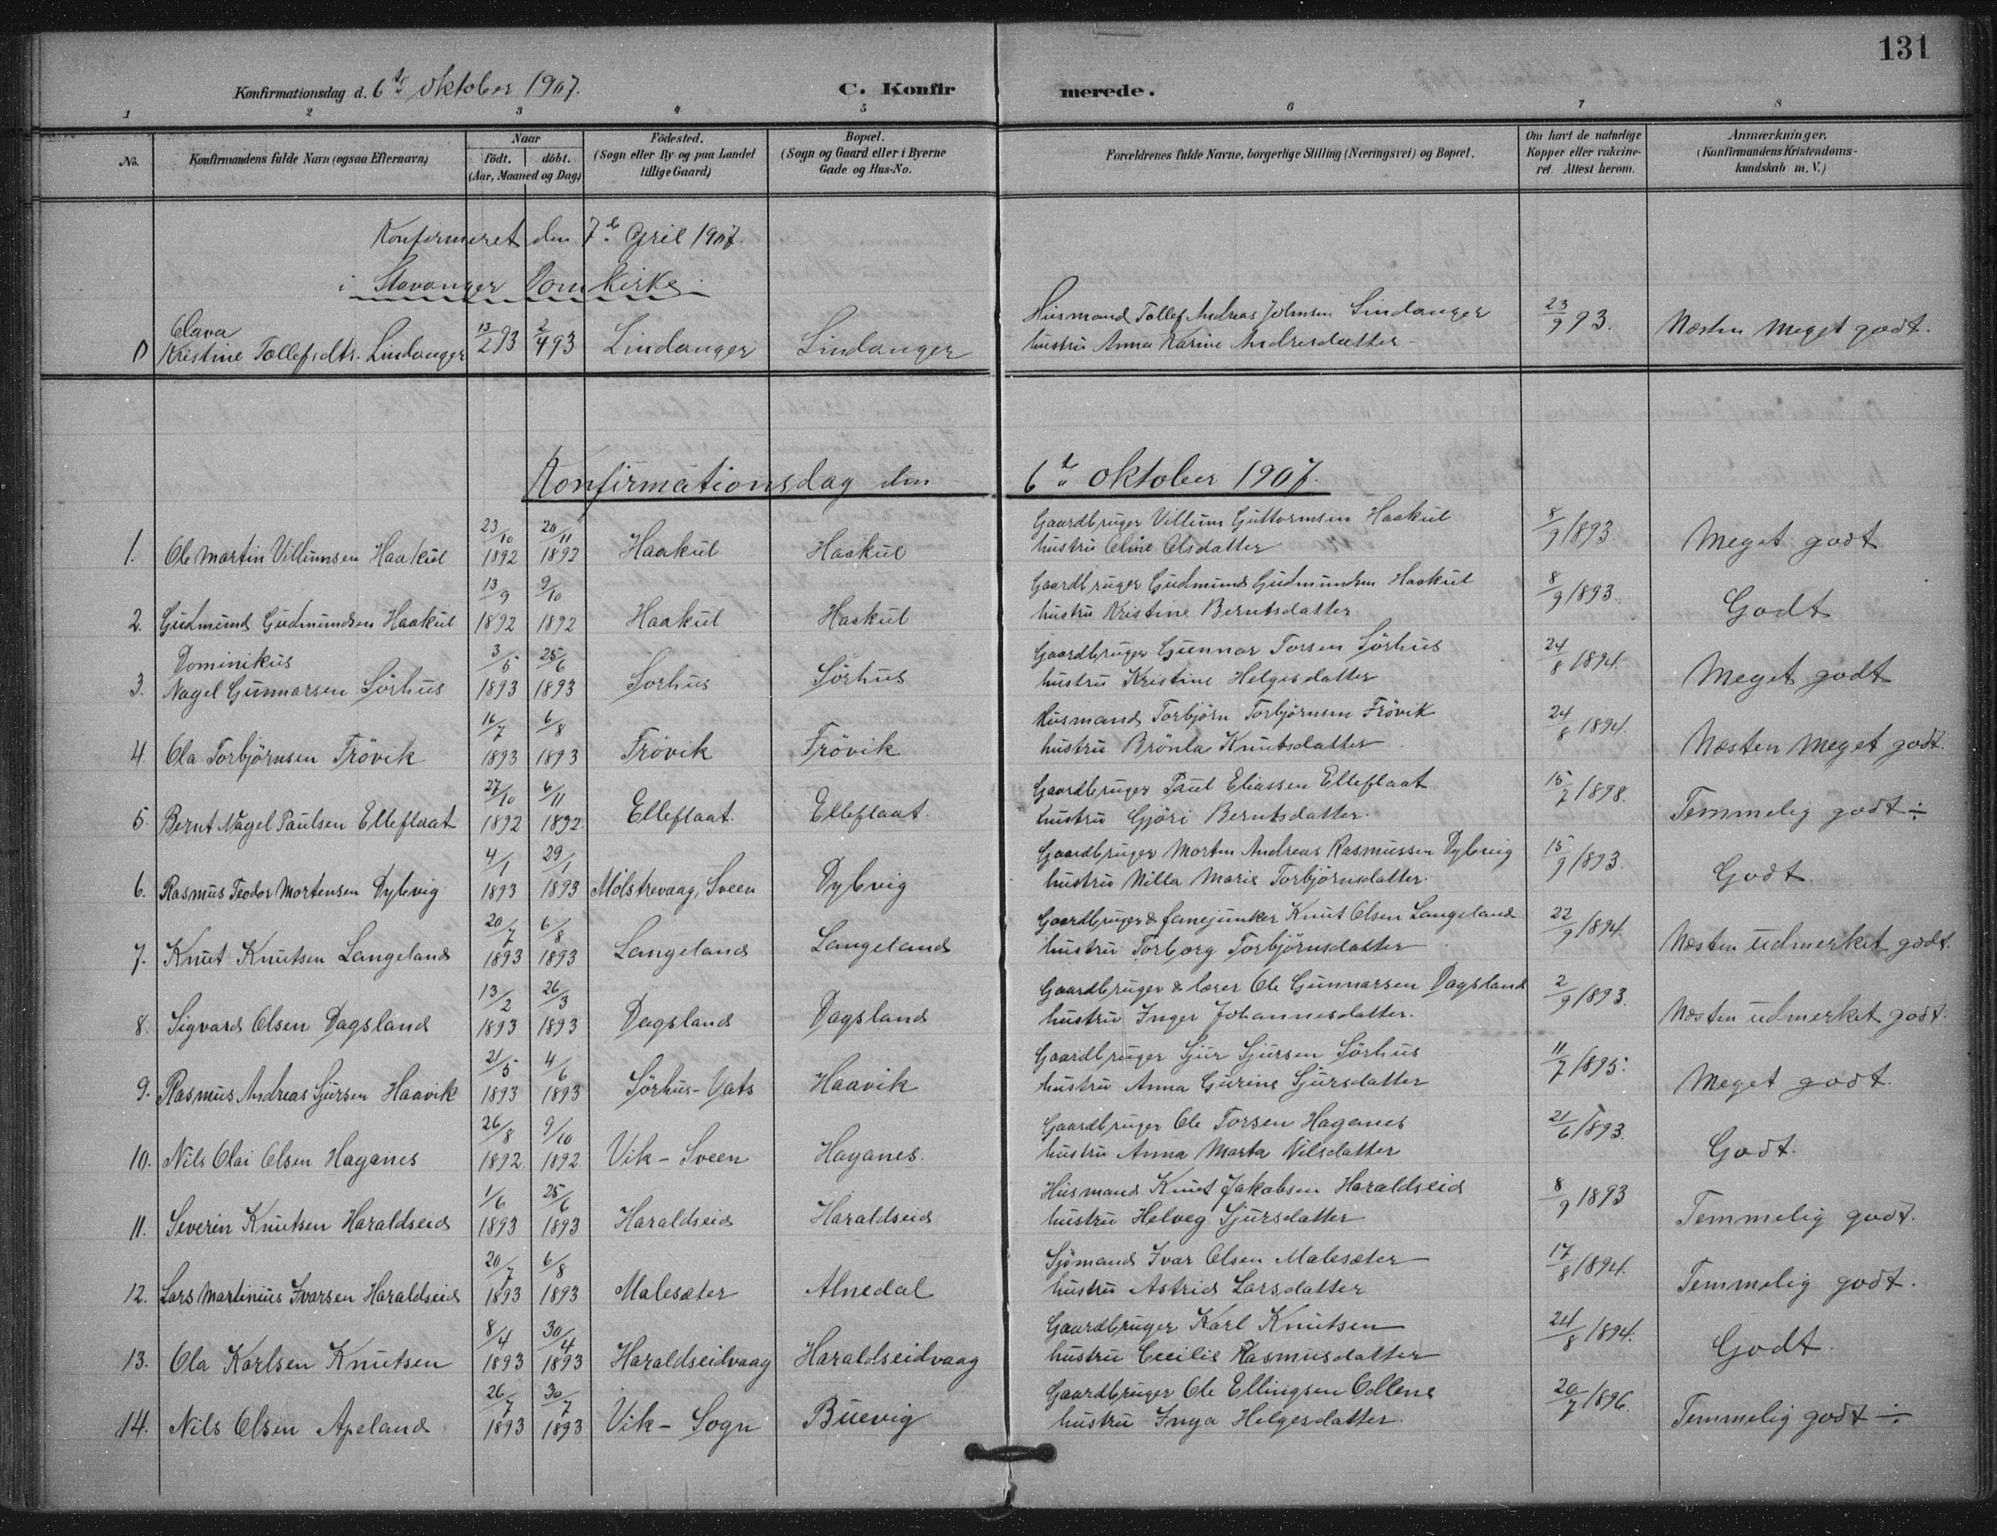 131
Konfirmationsdag d. 6te oktober 1907.
C. Konfirmerede.
1 2 3 4 5 6 7 8
No. Konfirmandens fulde Navn (ogsaa Efternavn) Naar født. døbt. (Aar, Maaned og Dag) Fødested. (Sogn eller By og paa Landet tillige Gaard) Bopæl. (Sogn og Gaard eller i Byerne Gade og Hus-No. Forældrenes fulde Navne, borgerlige Stilling (Næringsvei) og Bopæl. Om havt de naturlige Kopper eller vakcineret. Attest herom. Anmærkninger. (Konfirmandens Kristendomskundskab m. V.)
Konfirmeret den 7de April 1907.
i Stavanger Domkirke.
Olava Husmand Tollef Andreas Johnsen Lindanger
Kristine Tollefsdtr. Lindanger 13/2 93 2/4 93 Lindanger Lindanger hustru Anna Karine Andresdatter 23/9 93. Næsten meget godt.
Konfirmationsdag den 6te oktober 1907.
1. Ole Martin Villumsen Haakul 23/10 1892 20/11 1892 Haakul Haakul Gaardbruger Villum Guttormsen Haakul
hustru Oline Olsdatter 8/9 1893. Meget godt
2. Gudmund Gudmundsen Haakul 13/9 1892 9/10 1892 Haakul Haakul Gaardbruger Gudmund Gudmundsen Haakul
hustru Kristine Berntsdatter 8/9 1893. Godt
3. Dominikus Nagel Gunnarsen Sørhus 3/5 1893 25/6 1893 Sørhus Sørhus Gaardbruger Gunnar Torsen Sørhus
hustru Kristine Helgesdatter 24/8 1894. Meget godt
4. Ola Torbjørnsen Frøvik 16/7 1893 6/8 1893 Frøvik Frøvik Husmand Torbjørn Torbjørnsen Frøvik
hustru Brønla Knutsdatter 24/8 1894. Næsten meget godt.
5. Bernt Nagel Paulsen Elleflaat 27/10 1892 6/11 1892. Elleflaat. Elleflaat. Gaardbruger Paul Eliassen Elleflaat
hustru Gjøri Berntsdatter. 15/7 1898. Temmelig godt ÷
6. Rasmus Teodor Mortensen Dybvig 4/1 1893 29/1 1893 Mølstrevaag, Sveen Dybvig Gaardbruger Morten Andreas Rasmussen Dybvig
hustru Nilla Marie Torbjørnsdatter. 15/9 1893. Godt.
7. Knut Knutsen Langeland 20/7 1893 6/8 1893 Langeland Langeland Gaardbruger & fanejunker Knut Olsen Langeland
hustru Torborg Torbjørnsdatter 22/9 1894. Næsten udmerket godt.
8. Sigvard Olsen Dagsland 13/2 1893 26/3 1893 Dagsland Dagsland Gaardbruger & lærer Ole Gunnarsen Dagsland
hustru Inger Johannesdatter. 2/9 1893. Næsten udmerket godt.
9. Rasmus Andreas Sjursen Haavik 21/5 1893 4/6 1893 Sørhus - Vats Haavik Gaardbruger Sjur Sjursen Sørhus
hustru Anna Gurine Sjursdatter 11/7 1895. Meget godt.
10. Nils Olai Olsen Haganes 26/8 1892 9/10 1892 Vik - Sveen Haganes. Gaardbruger Ole Torsen Haganes
hustru Anna Marta Nilsdatter 21/6 1893. Godt.
11. Severin Knutsen Haraldseid 1/6 1893 25/6 1893 Haraldseid Haraldseid Husmand Knut Jakobsen Haraldseid
hustru Helveg Sjursdatter 8/9 1893 Temmelig godt.
12. Lars Martinius Ivarsen Haraldseid 20/7 1893 6/8 1893 Malesæter Alnedal Sjømand Ivar Olsen Malesæter
hustru Astrid Larsdatter 17/8 1894. Temmelig godt.
13. Ola Karlsen Knutsen 8/4 1893 30/4 1893 Haraldseidvaag Haraldseidvaag Gaardbruger Karl Knutsen
hustru Cecilie Rasmusdatter 24/8 1894. Godt.
14. Nils Olsen Apeland 26/7 1893 30/7 1893 Vik - Sogn Buevig Gaardbruger Ole Ellingsen
hustru Inga Helgesdatter. 20/7 1896. Temmelig godt ÷